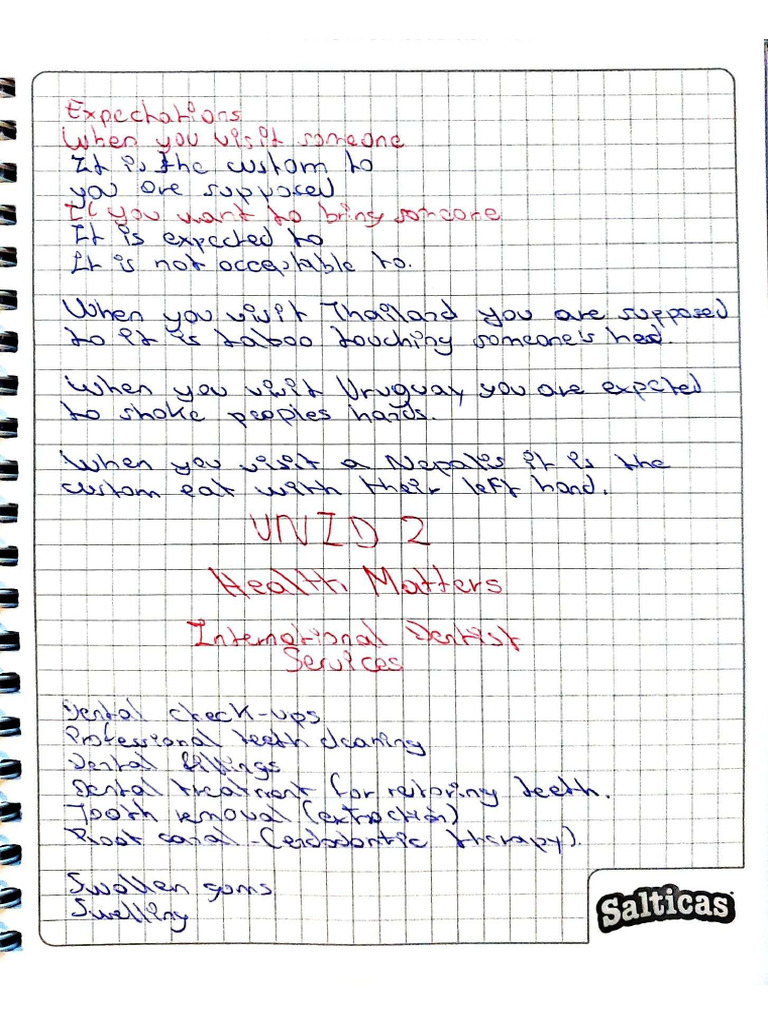 Expectations
When you visit someone
It is the custom to
you are supposed
If you want to bring someone
It is expected to
It is not acceptable to.
When you visit Thailand you are supposed
to it is taboo touching someone's head.
When you visit Uruguay you are expected
to shake peoples hands.
When you visit a Nepalis it is the
custom eat with their left hand.
UNID 2
Health Matters
International Dentist
Services
Dental check-ups
Professional teeth cleaning
Dental fillings
Dental treatment for retoring teeth.
Tooth removal (extractión)
Root canal (endodontic therapy).
Swollen gums
Swelling
Salticas